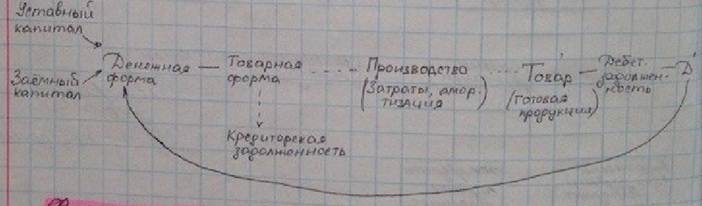 Уставный
капитал
Заёмный
капитал
Денежная
форма
Товарная
форма
Кредиторская
задолженность
Производство
(Затраты, амор-
тизация)
Товар'
(Готовая
продукция)
Дебет.
задолжен-
ность
Д'